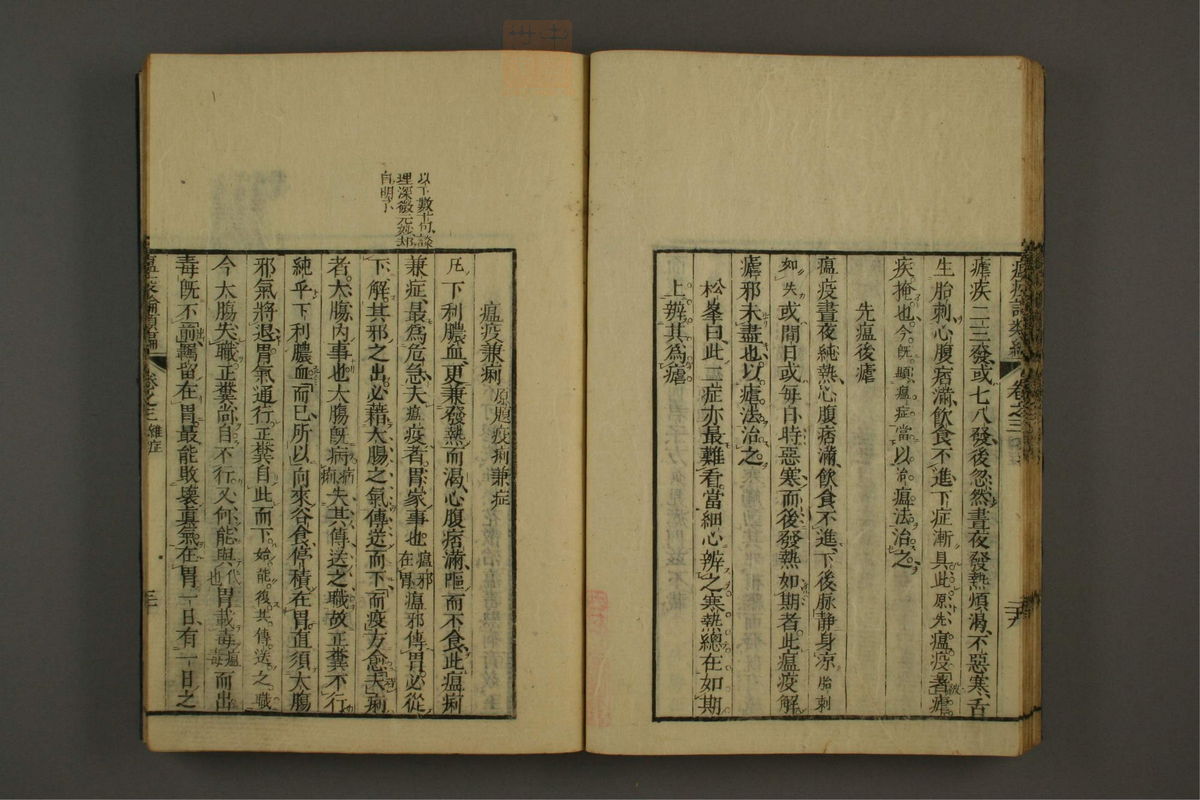 瘧疾二三發或七八發後忽然晝夜發熱煩渴不惡寒舌
生胎刺心腹痞滿飲食不進下症漸具此原先瘟疫著瘧
疾掩也今既顯瘟症當以治瘟法治之
先瘟後瘧
瘟疫晝夜純熱心腹痞滿飲食不進下後脉静身凉胎刺
如失或間日或每日時惡寒而後發熱如期者此瘟疫解
瘧邪未盡也以瘧法治之
松峯曰此二症亦最難看當細心辨之寒熱總在如期
上辨其為瘧
以下數十句談
理深微元妙却
自明了
瘟疫兼痢 原題疫痢兼症
凡下利膿血更兼發熱而渴心腹痞滿嘔而不食此瘟痢
兼症最為危急夫瘟疫者胃家事也 瘟邪在胃 瘟邪傳胃必從
下解其邪之出必藉大腸之氣傳送而下而疫方愈夫痢
者大腸內事也大腸既病 病痢 失其傳送之職故正糞不行
純乎下利膿血而已所以向來谷食停積在胃直須大腸
邪氣將退胃氣通行正糞自此而下始能復其傳送之職
今大腸失職正糞尚自不行又何能與 代也 胃載毒 瘟毒 而出
毒既不前羈留在胃最能敗壞真氣在胃一日有一日之
卷之三 雜症